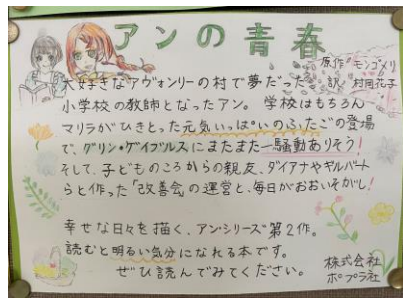 アンの青春
原作 モンゴメリ
訳 村岡花子
大好きなアヴォンリーの村で夢だった
小学校の教師となったアン。学校はもちろん
マリラがひきとった元気いっぱいのふたごの登場
で、グリン・ゲイブルスにまたまた一騒動ありそう!
そして、子どものころからの親友、ダイアナやギルバート
らと作った「改善会」の運営と、毎日がおおいそがし!
幸せな日々を描く、アンシリーズ第2作。
読むと明るい気分になれる本です。
ぜひ読んでみてください。
株式会社
ポプラ社